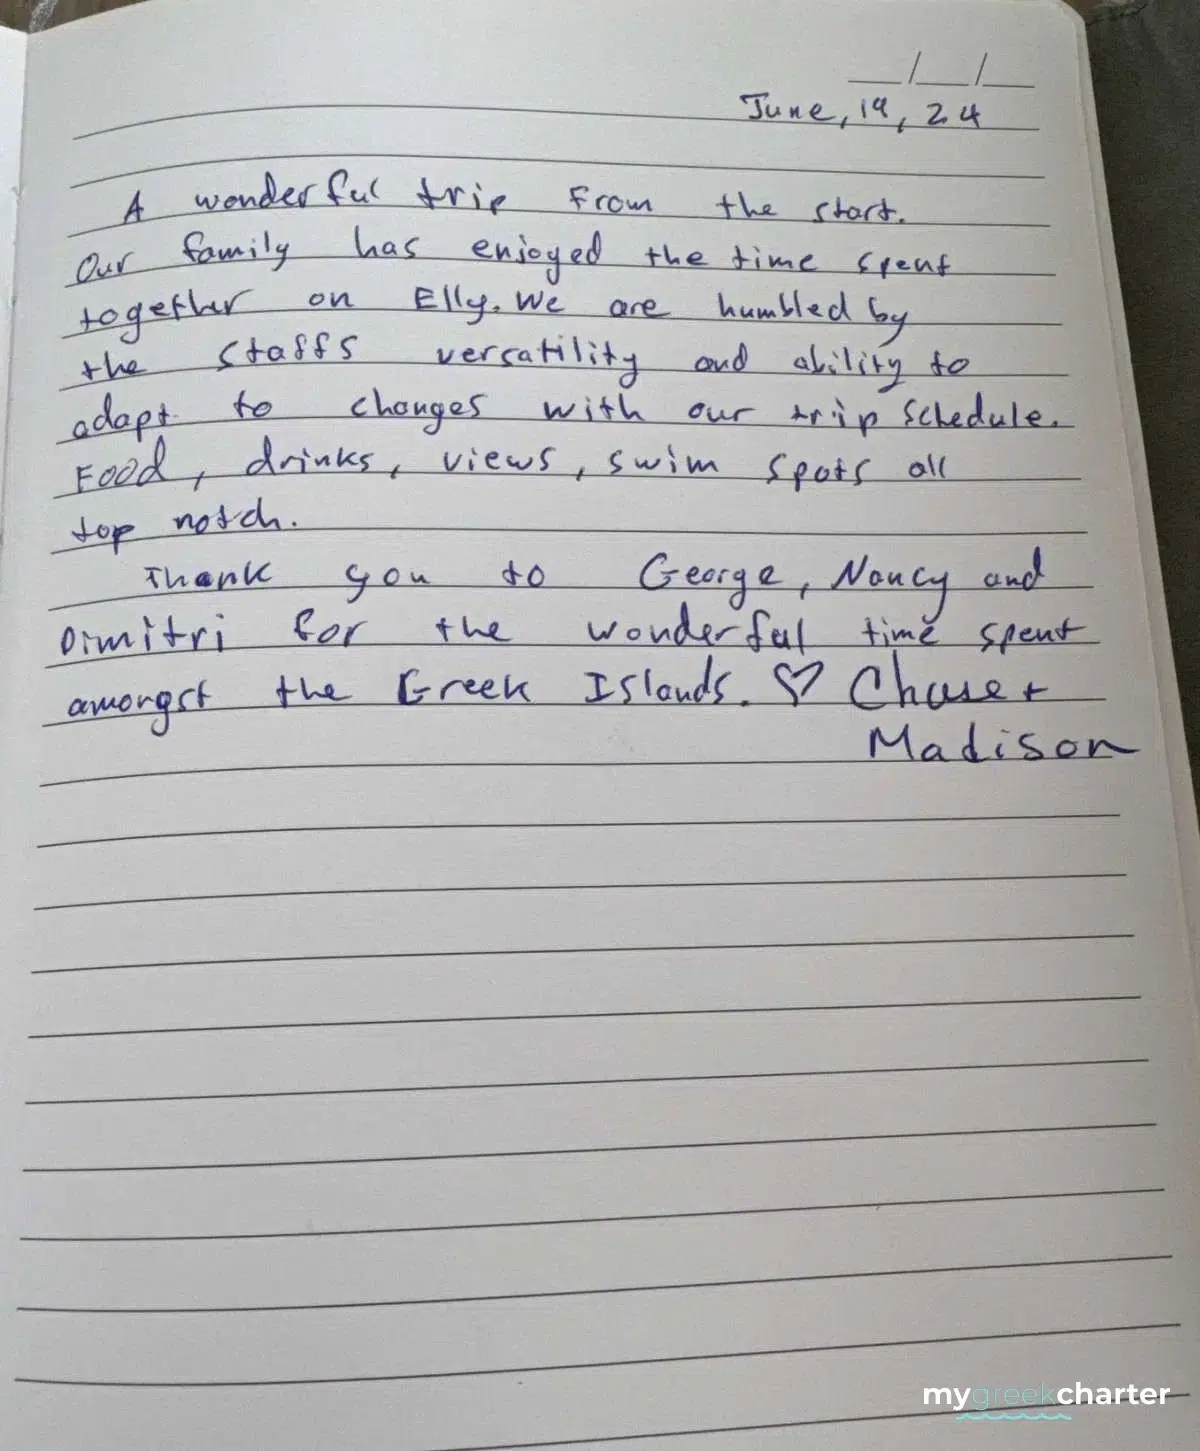 __/__/__
June, 19, 24
A wonderful trip from the start.
Our family has enjoyed the time spent
together on Elly. We are humbled by
the staffs versatility and ability to
adapt to changes with our trip schedule.
Food, drinks, views, swim spots all
top notch.
Thank you to George, Nancy and
Dimitri for the wonderful time spent
amongst the Greek Islands. ♡ Chase +
Madison
mygreekcharter